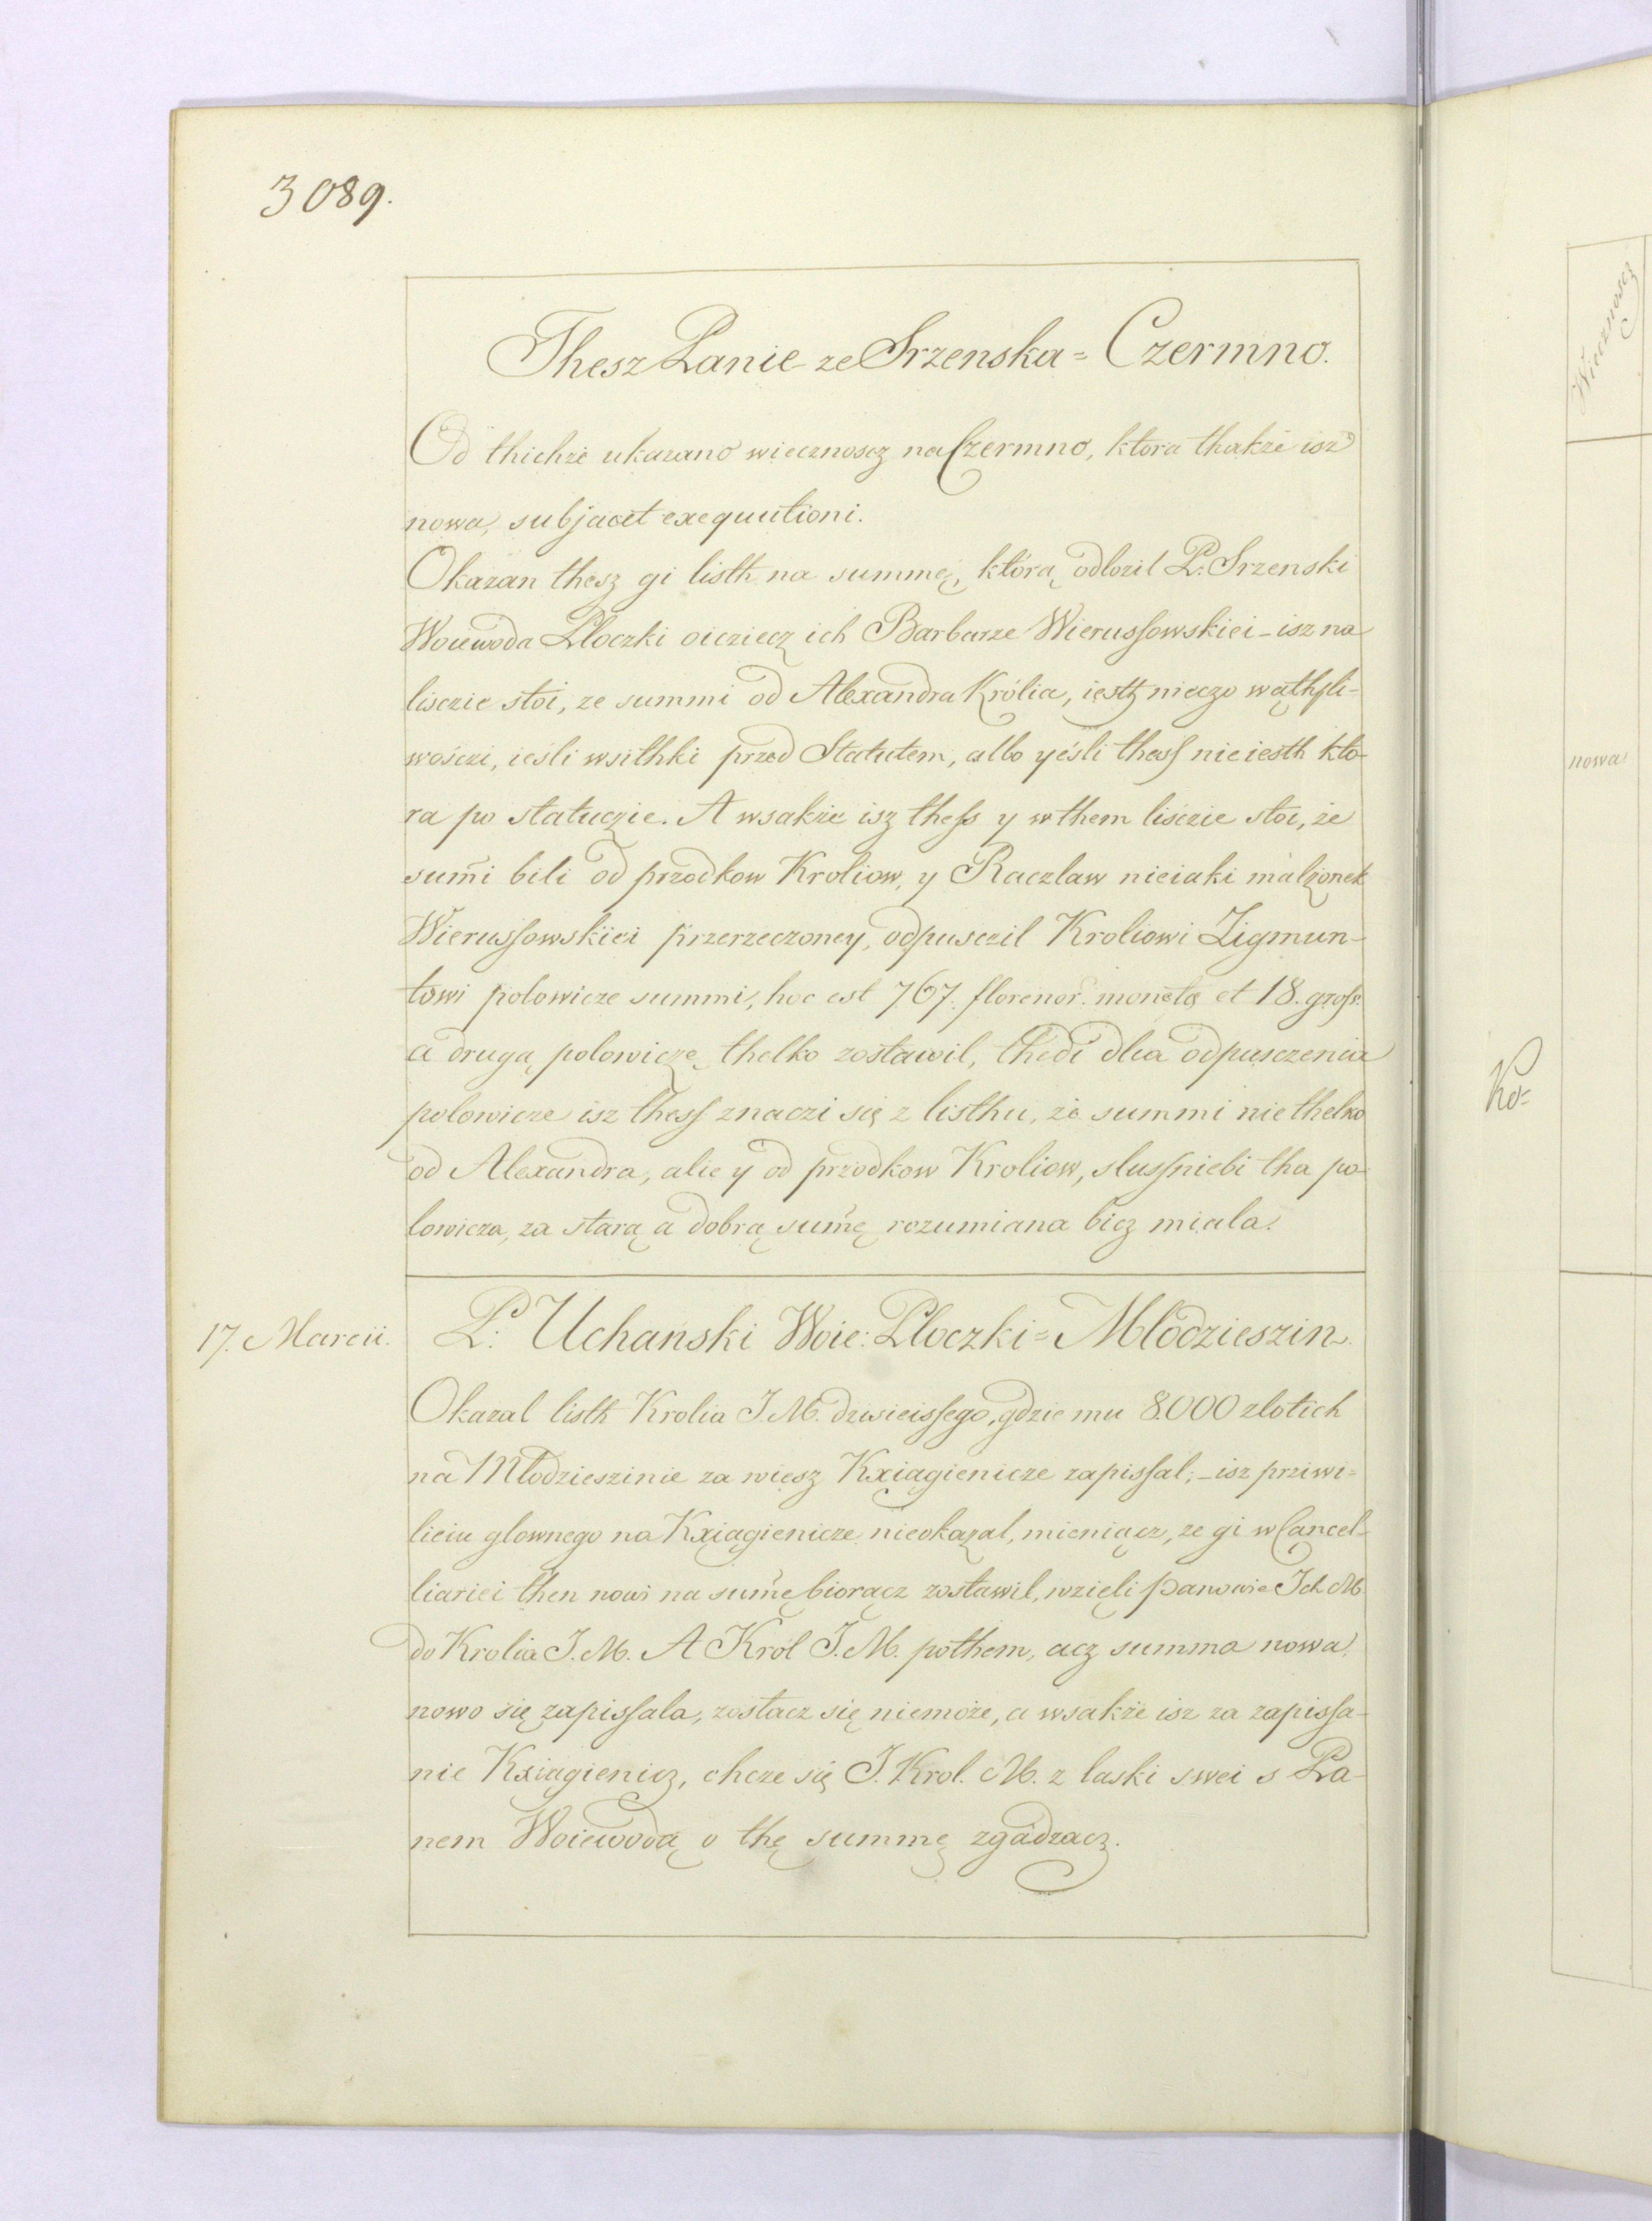 3089.
Thesz Panie ze Srzenska = Czermno.
Od thichże ukazano wiecznoscz na Czermno, ktora thakże isz
nowa, subjacet exequutioni.
Okazan thesz gi listh na summę, którą odlozil P. Srzenski
Woiewoda Ploczki oicziecz ich Barbarze Wierussowskiei – isz na
lisczie stoi, ze summi od Alexandra Królia, iesth nieczo wąthpli-
wosczi, iesli wsithki przed Statutem, albo yésli thess nieiesth kto-
ra po statuczie. A wsakże isz thess y w them lisczie stoi, że
sum̄i bili od przodkow Kroliow, y Raczlaw nieiaki malżonek
Wierussowskiei przerzeczoney, odpusczil Kroliowi Zigmun-
towi polowicze summi, hoc est 767. florenor. moneta et 18. gross.
a drugą polowiczę thelko zostawil, thedi dla odpusczenia
polowicze isz thess znaczi się z listhu, że summi nie thelko
od Alexandra, alie y od przodkow Kroliow, slussniebi tha po-
lowicza, za starą a dobrą sum̄ę rozumiana bicz miala.
17. Marcii.
P. Uchański Woie: Ploczki = Mlodzieszin.
Okazal listh Krolia J. M. dzisieissego, gdzie mu 8.000 zlotich
na Młodzieszinie za wiesz Kxiągienicze zapissal; – isz prziwi-
lieiu glownego na Kxiągienicze nieokazal, mieniącz, ze gi w Cancel-
liariei then nowi na sum̄ę biorącz zostawil, wzięli panowie Ich M.
do Krolia J. M. A Król J. M. pothem, acz summa nowa
nowo się zapissala, zostacz się niemoże, a wsakże isz za zapissa-
nie Kxiągienicz, chcze się J. Krol. M. z laski swei s Pa-
nem Woiewodą o thę summę zgadzacz.
Wiecznoscz
nowa
Ko=